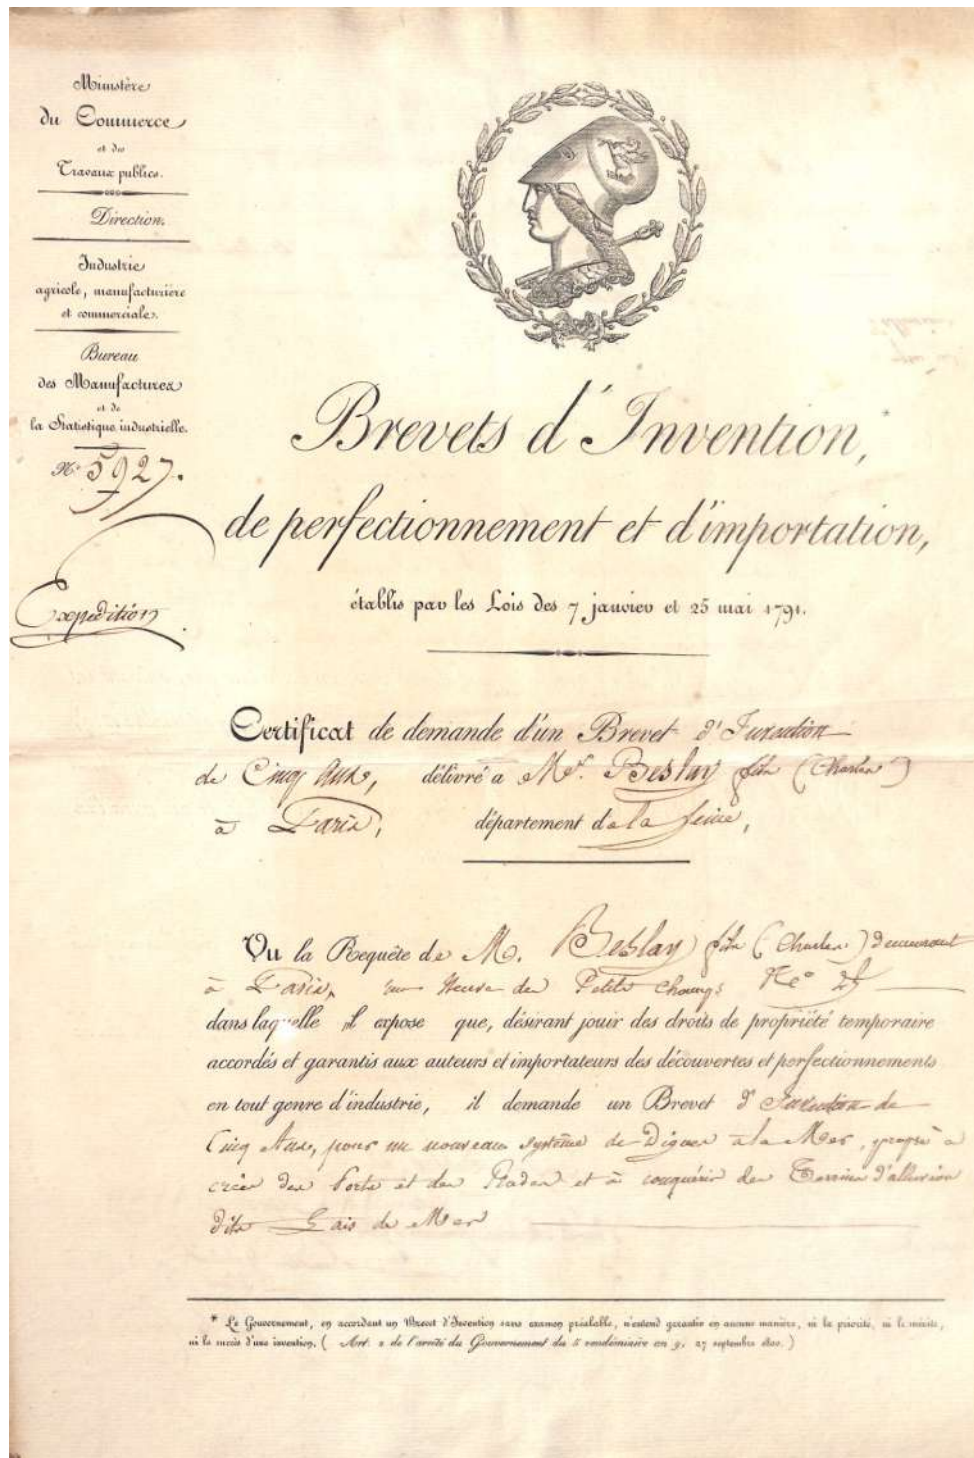 Ministère
du Commerce
et des
Travaux publics.
Direction.
Industrie
agricole, manufacturière
et commerciale.
Bureau
des Manufactures
et de
la Statistique industrielle.
No. 5927.
Expédition
Brevets d'Invention,*
de perfectionnement et d'importation,
établis par les Lois des 7 janvier et 25 mai 1791.
Certificat de demande d'un Brevet d'Invention
de Cinq Ans, délivré à Mr. Beslay fils (Charles)
à Paris, département de la Seine,
Vu la Requête de M. Beslay fils (Charles) demeurant
à Paris, rue Neuve des Petits Champs No
dans laquelle il expose que, désirant jouir des droits de propriété temporaire
accordés et garantis aux auteurs et importateurs des découvertes et perfectionnements
en tout genre d'industrie, il demande un Brevet d'Invention de
Cinq Ans, pour un nouveau système de Digues à la Mer, propre à
créer des Ports et des Rades et à conquérir des Terrains d'alluvion
dits Lais de Mer
* Le Gouvernement, en accordant un Brevet d'Invention sans examen préalable, n'entend garantir en aucune manière, ni la priorité, ni le mérite,
ni le succès d'une invention. (Art. 2 de l'arrêté du Gouvernement du 5 vendémiaire an 9, 27 septembre 1800.)